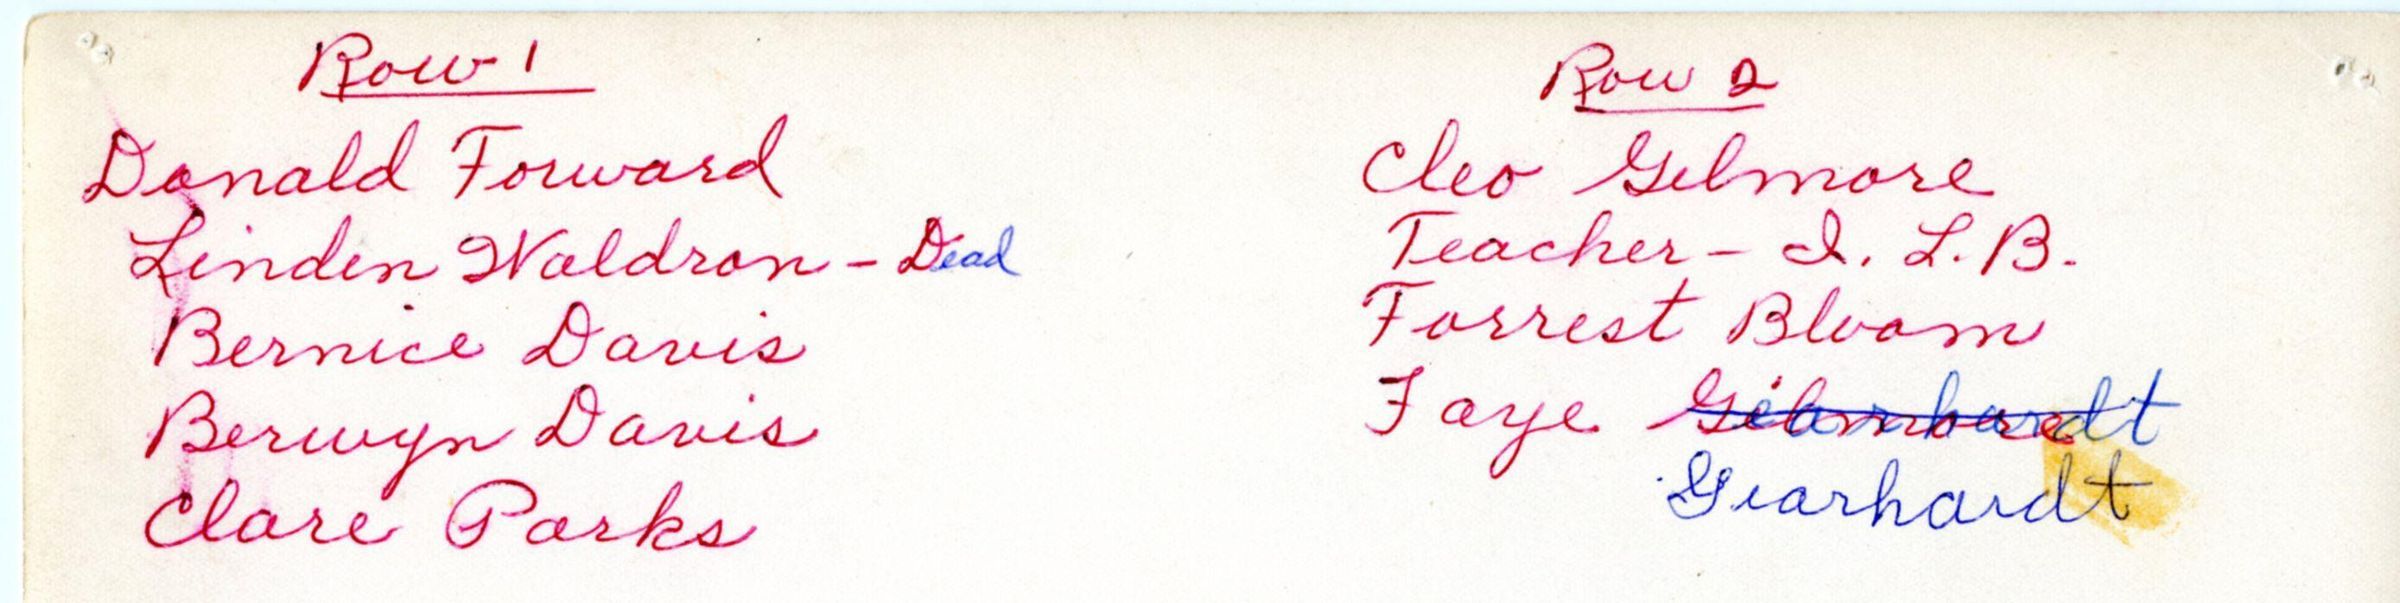 Row 1
Donald Forward
Linden Waldron - Dead
Bernice Davis
Berwyn Davis
Clare Parks
Row 2
Cleo Gilmore
Teacher - I. L. B.
Forrest Bloom
Faye
Gearhardt